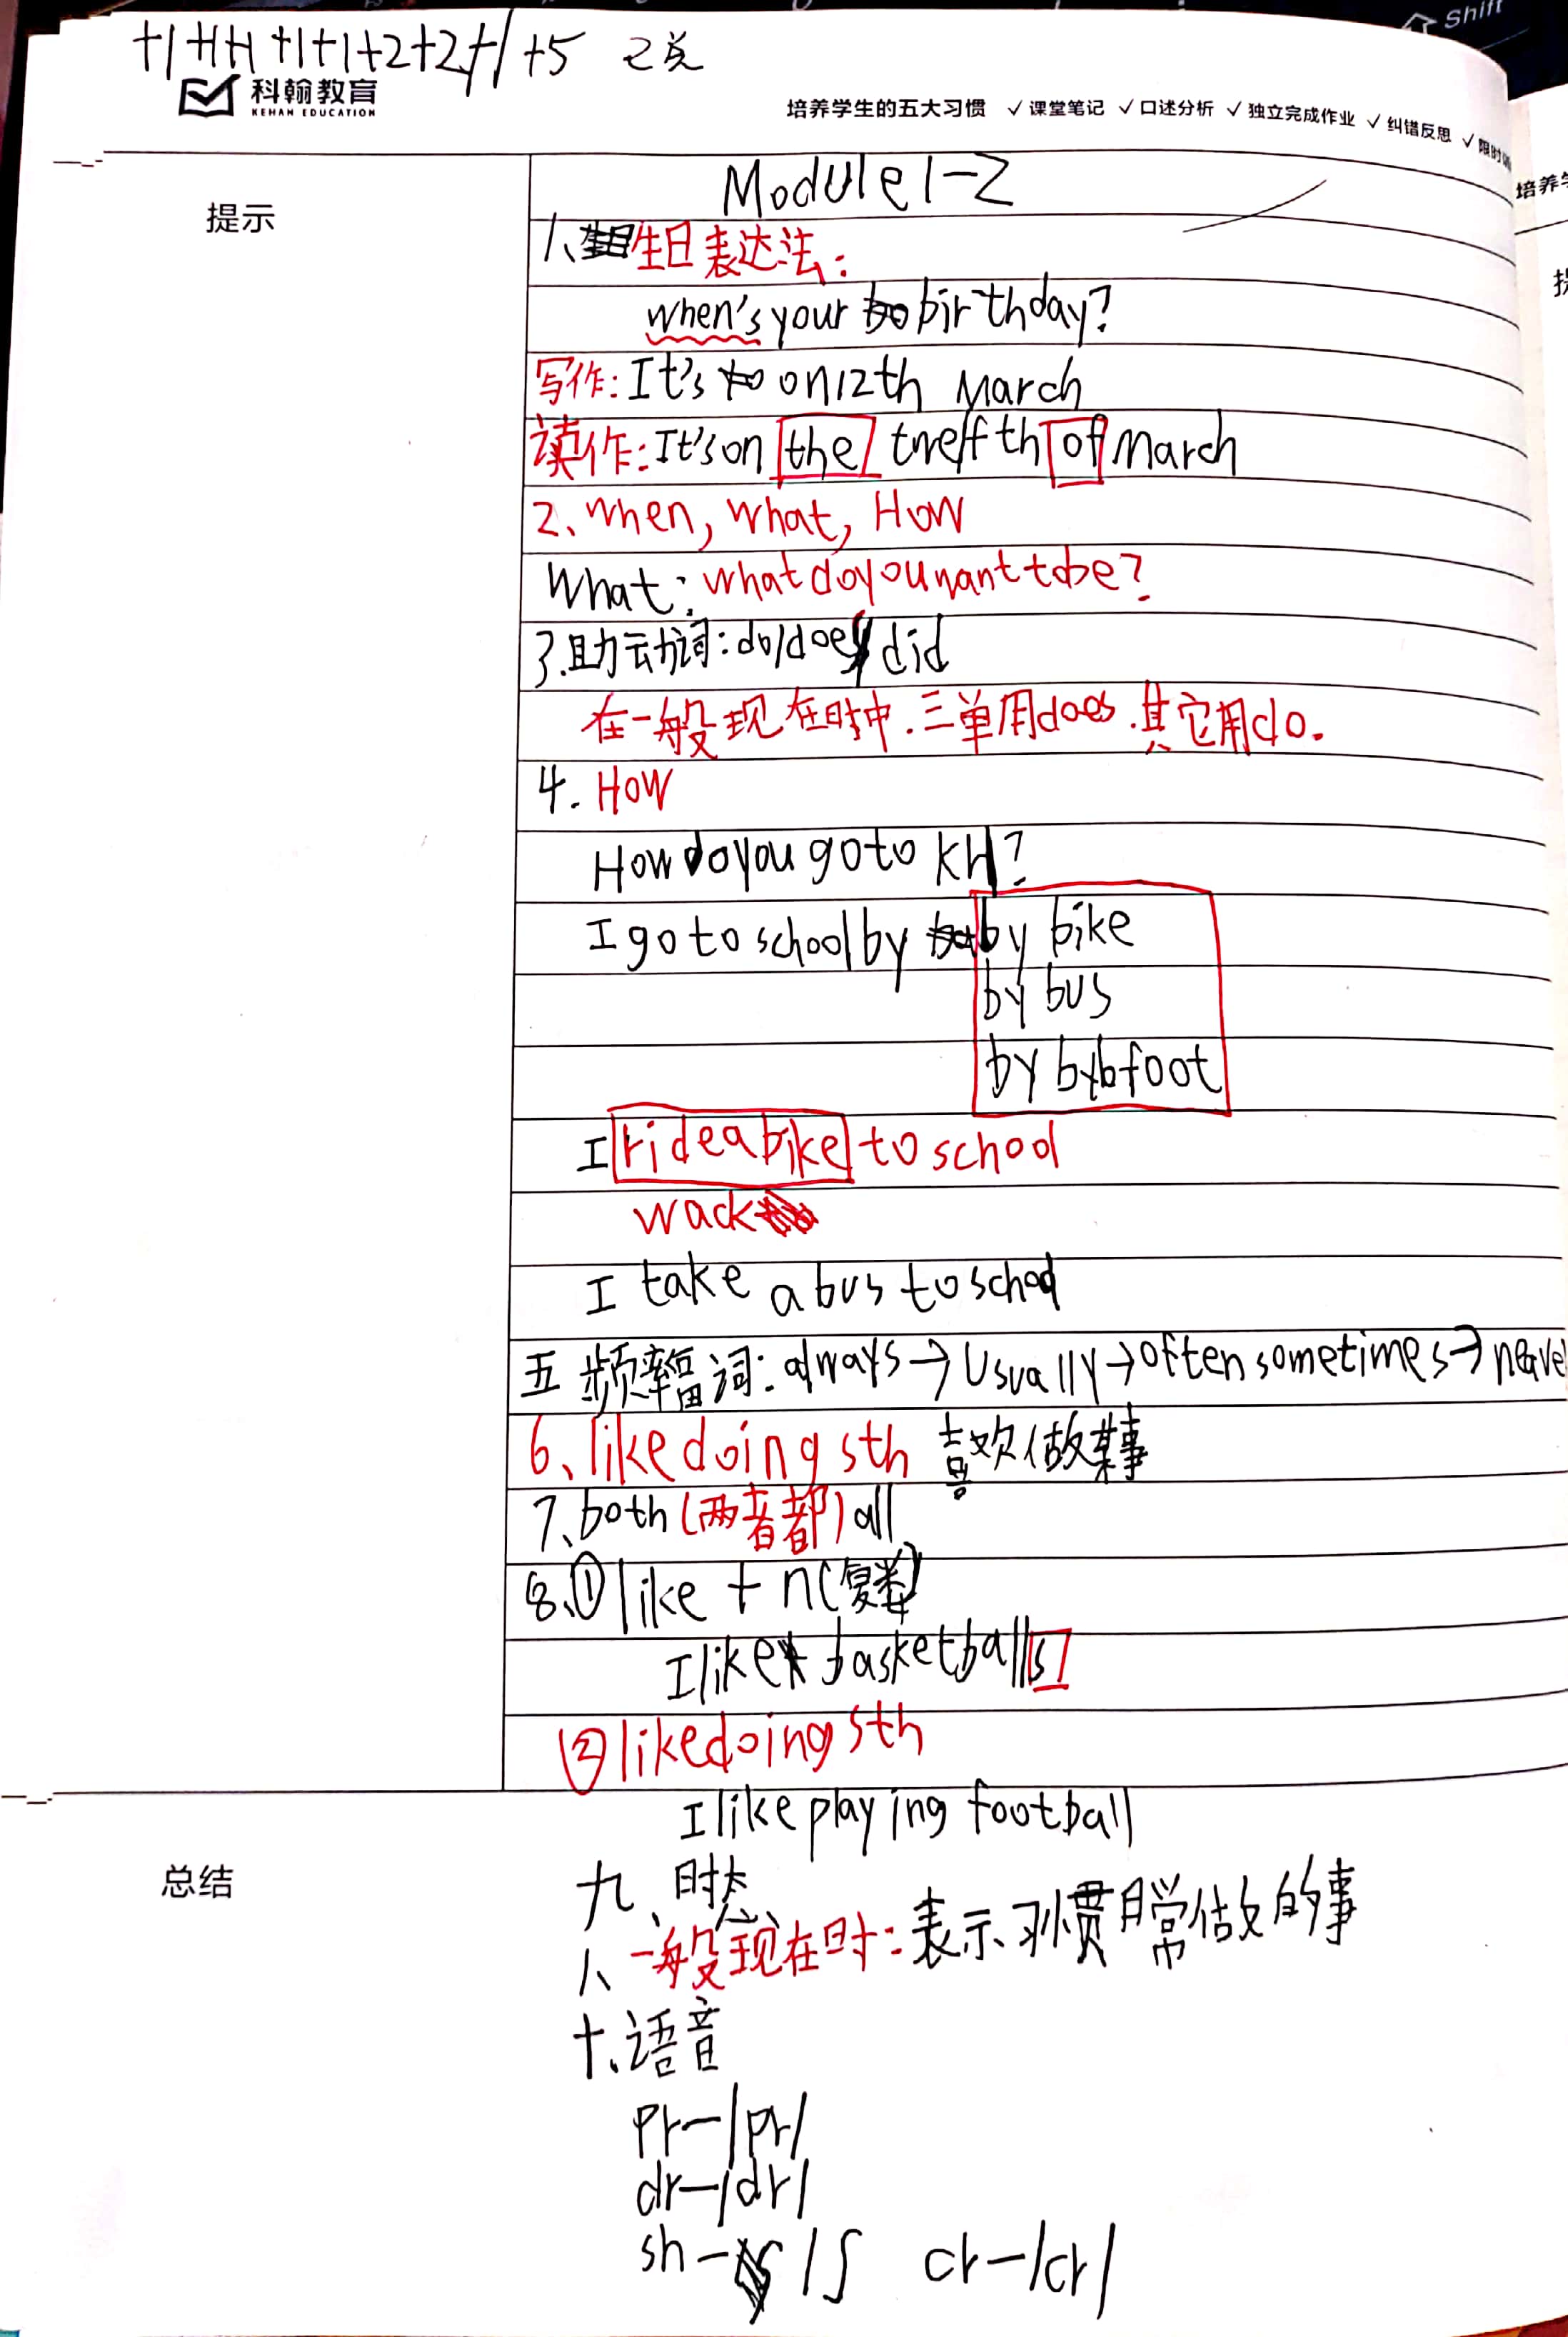 Shift
+1+1+1+1+1+2+2+1+5
科翰教育
KEHAN EDUCATION
培养学生的五大习惯 ✓课堂笔记 ✓口述分析 ✓独立完成作业 ✓纠错反思 ✓限时
培养学
提示
Module 1-2
1、生日表达法:
when's your birthday?
写作: It's on 12th March
读作: It's on the twelfth of March
2、when, what, How
What: what do you want to be?
3.助动词: do/does/did
在一般现在时中.三单用does.其它用do.
4. How
How do you go to KH?
I go to school by by bike
by bus
by foot
I ride a bike to school
wack
I take a bus to school
五 频率副词: always→usually→often sometimes→neave
6、like doing sth 喜欢做某事
7、both (两者都) all
8、①like + n(复数)
I like basketballs
②like doing sth
I like playing football
总结
九、时态
1、一般现在时: 表示习惯日常做的事
十、语音
pr-/pr/
dr-/dr/
sh-/ʃ cr-/cr/